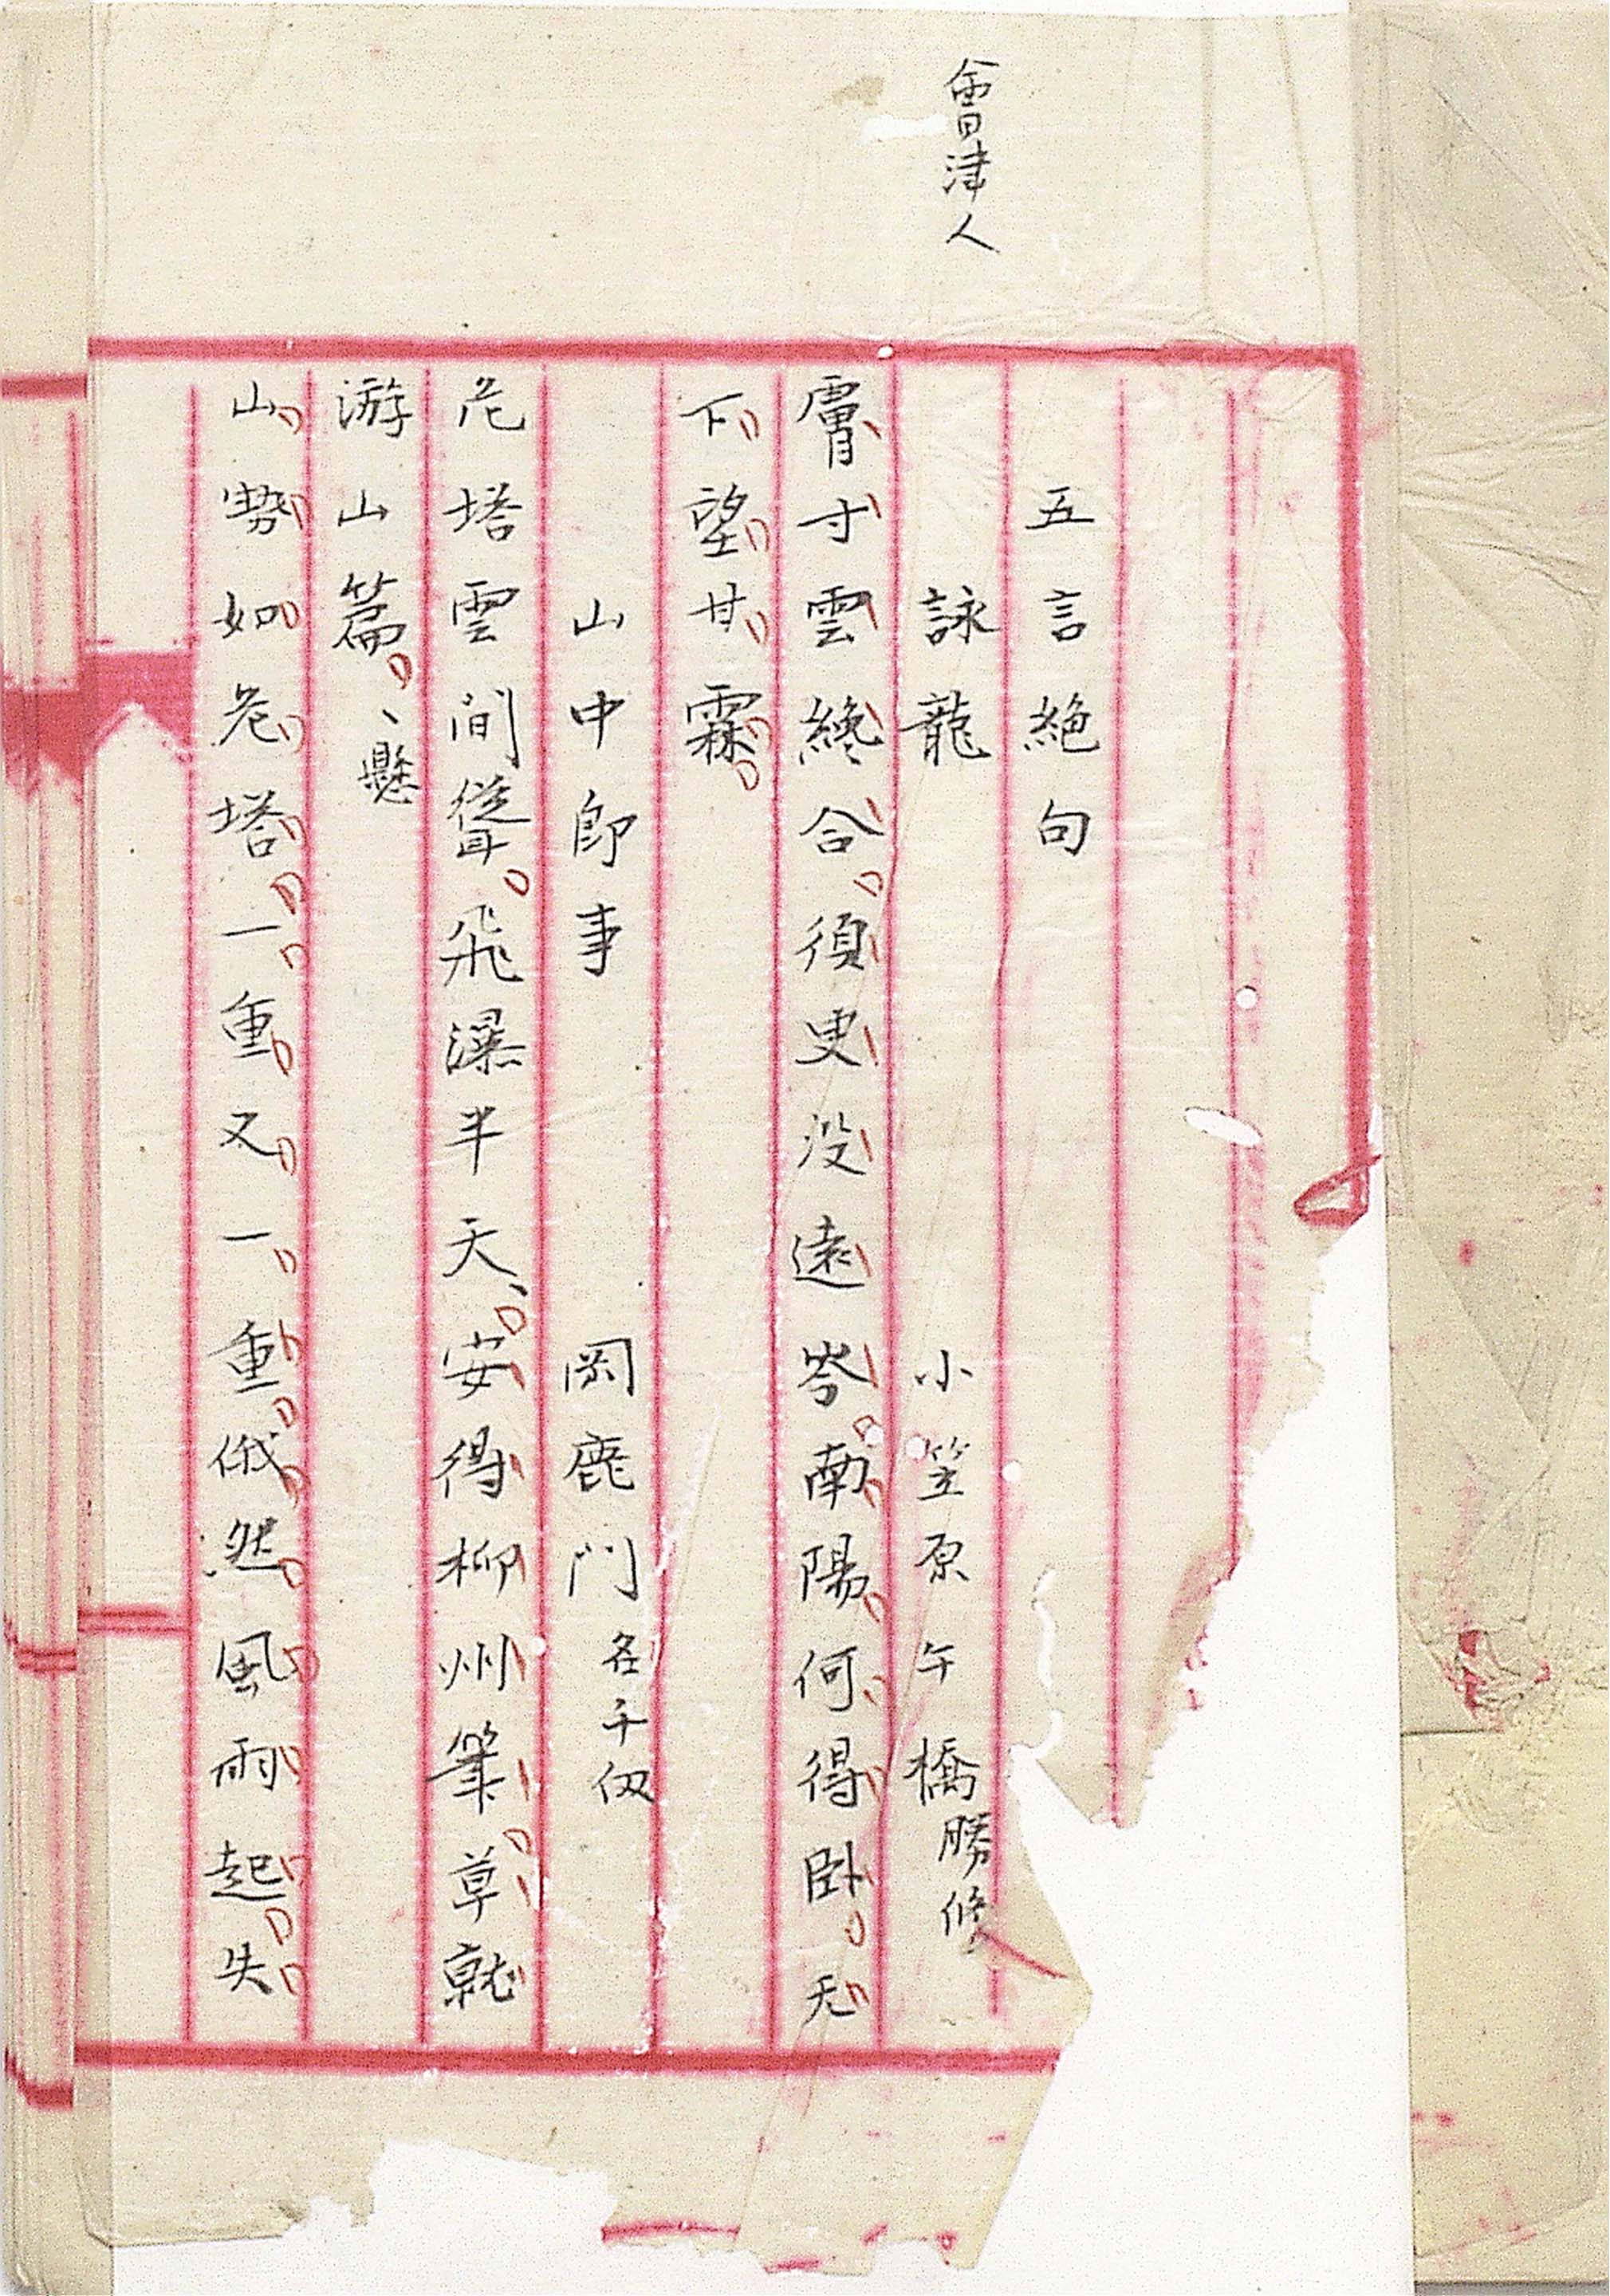 會津人
五言絶句
詠龍 小笠原午橋勝修
膚寸雲終合須叟没遠岑南陽何得臥天
下望甘霖
山中即事 岡鹿門名千仭
危塔雲間聳飛瀑半天安得柳州筆草就
游山篇、懸
山勢如危塔一重又一重俄然風雨起失